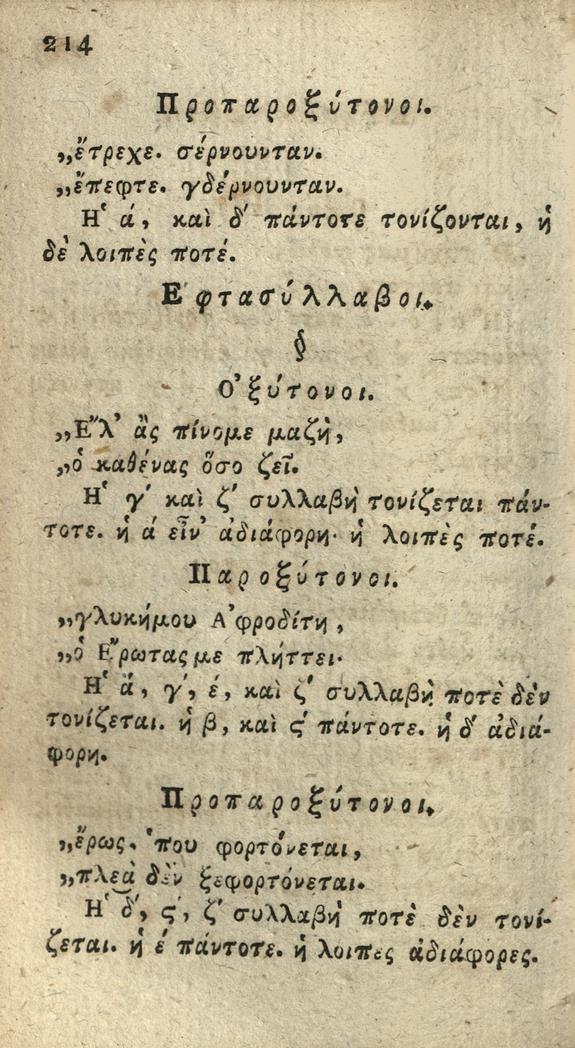 214
Προπαροξύτονοι.
„ἔτρεχε. σέρνουνταν.
„ἔπεφτε. γδέρνουνταν.
Ἡ ά, καὶ δ' πάντοτε τονίζονται, ἡ
δὲ λοιπὲς ποτέ.
Ἑφτασύλλαβοι.
§
Ὀξύτονοι.
„Ἔλ' ἂς πίνομε μαζὴ,
„ὁ καθένας ὅσο ζεῖ.
Ἡ γ' καὶ ζ' συλλαβὴ τονίζεται πάν-
τοτε. ἡ ά εἶν' ἀδιάφορη· ἡ λοιπὲς ποτέ.
Παροξύτονοι.
„γλυκήμου Ἀφροδίτη,
„ὁ Ἔρωτας με πλήττει·
Ἡ ά, γ', έ, καὶ ζ' συλλαβὴ ποτὲ δὲν
τονίζεται. ἡ β, καὶ ς' πάντοτε. ἡ δ' ἀδιά-
φορη.
Προπαροξύτονοι.
„ἔρως. 'που φορτόνεται,
„πλεὰ δὲν ξεφορτόνεται.
Ἡ δ', ς', ζ' συλλαβὴ ποτὲ δὲν τονί-
ζεται. ἡ έ πάντοτε. ἡ λοιπες ἀδιάφορες.